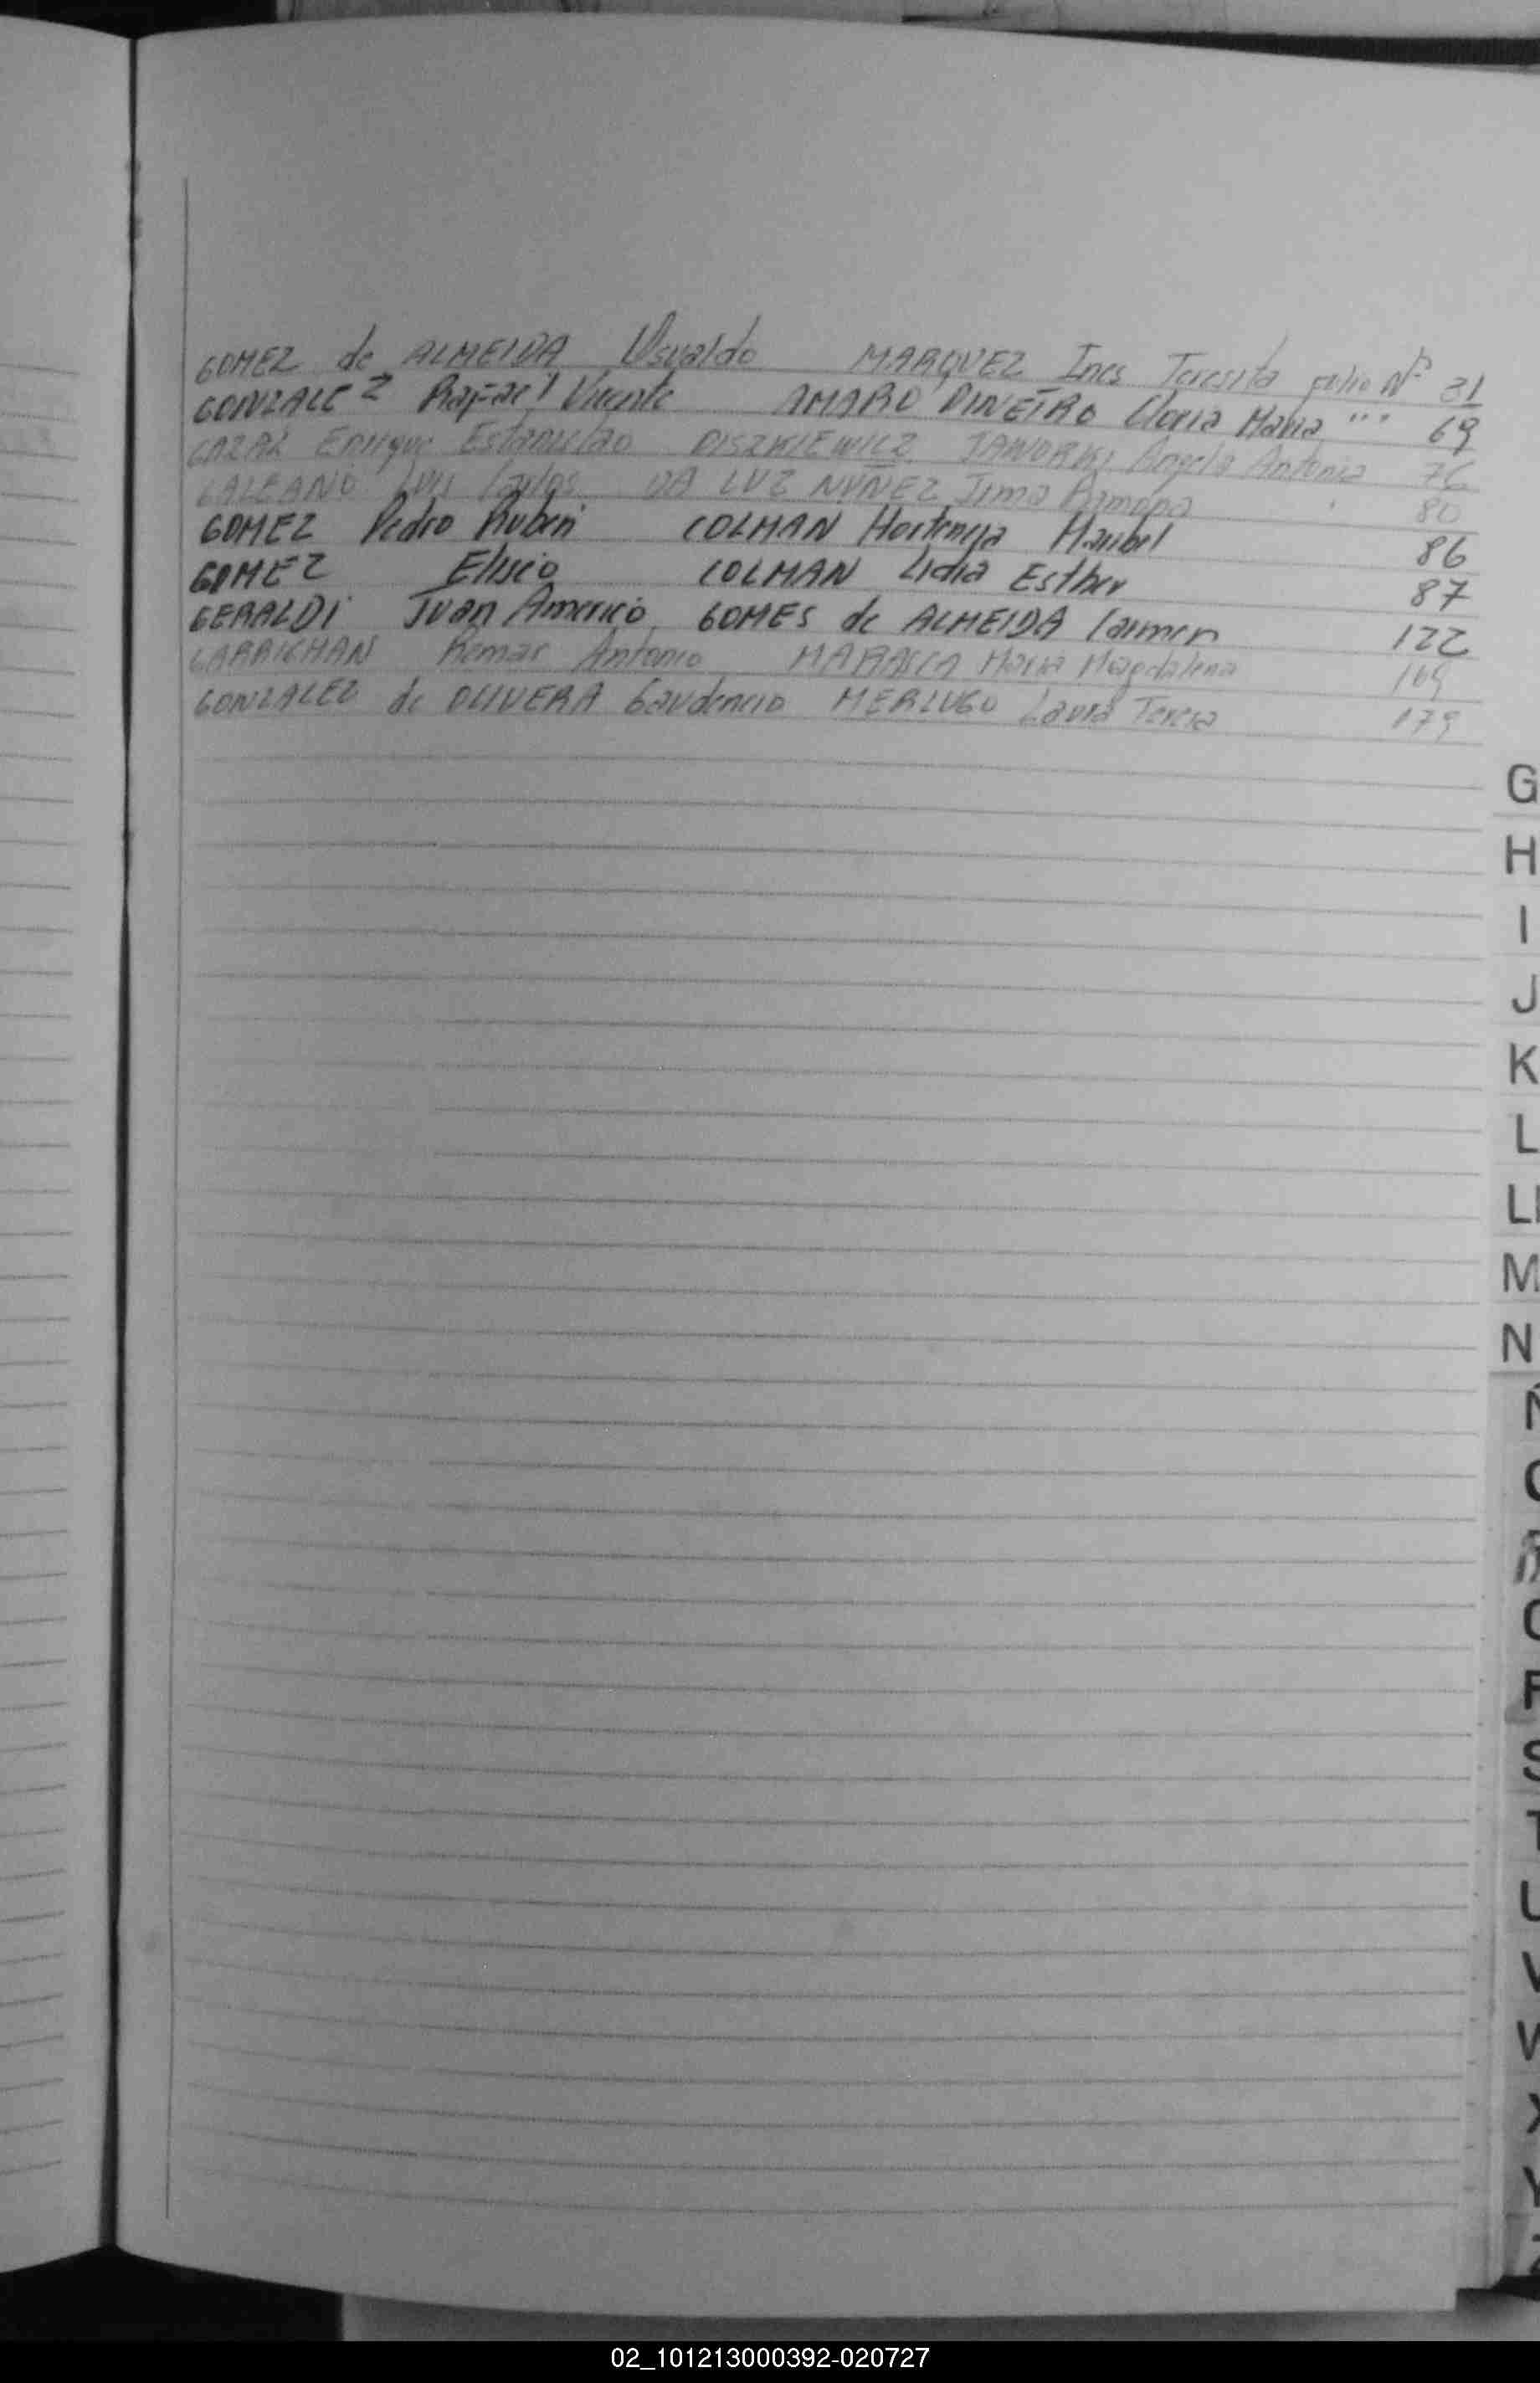 GOMEZ de ALMEIDA Usvaldo MARQUEZ Ines Teresita folio Nº 31
GONZALEZ Rafael Vicente AMARO PINEIRO Gloria Maria " " " 69
Enrique Estanislao DISZKIEWICZ JAWORSKI Angela Antonia 76
GALEANO Luis Carlos DA LUZ NUÑEZ Irma Ramona 80
GOMEZ Pedro Ruben COLMAN Hortencia Maribel 86
GOMEZ Eliseo COLMAN Lidia Esther 87
GERALDI Juan Americo GOMES de ALMEIDA Carmen 122
GARRICHAN Remar Antonio MARASCA Maria Magdalena 169
GONZALEZ de OLIVERA Gaudencio MERLUGO Laura Teresa 179
G
H
I
J
K
L
Ll
M
N
Ñ
S
T
U
V
W
X
Y
Z
02_101213000392-020727